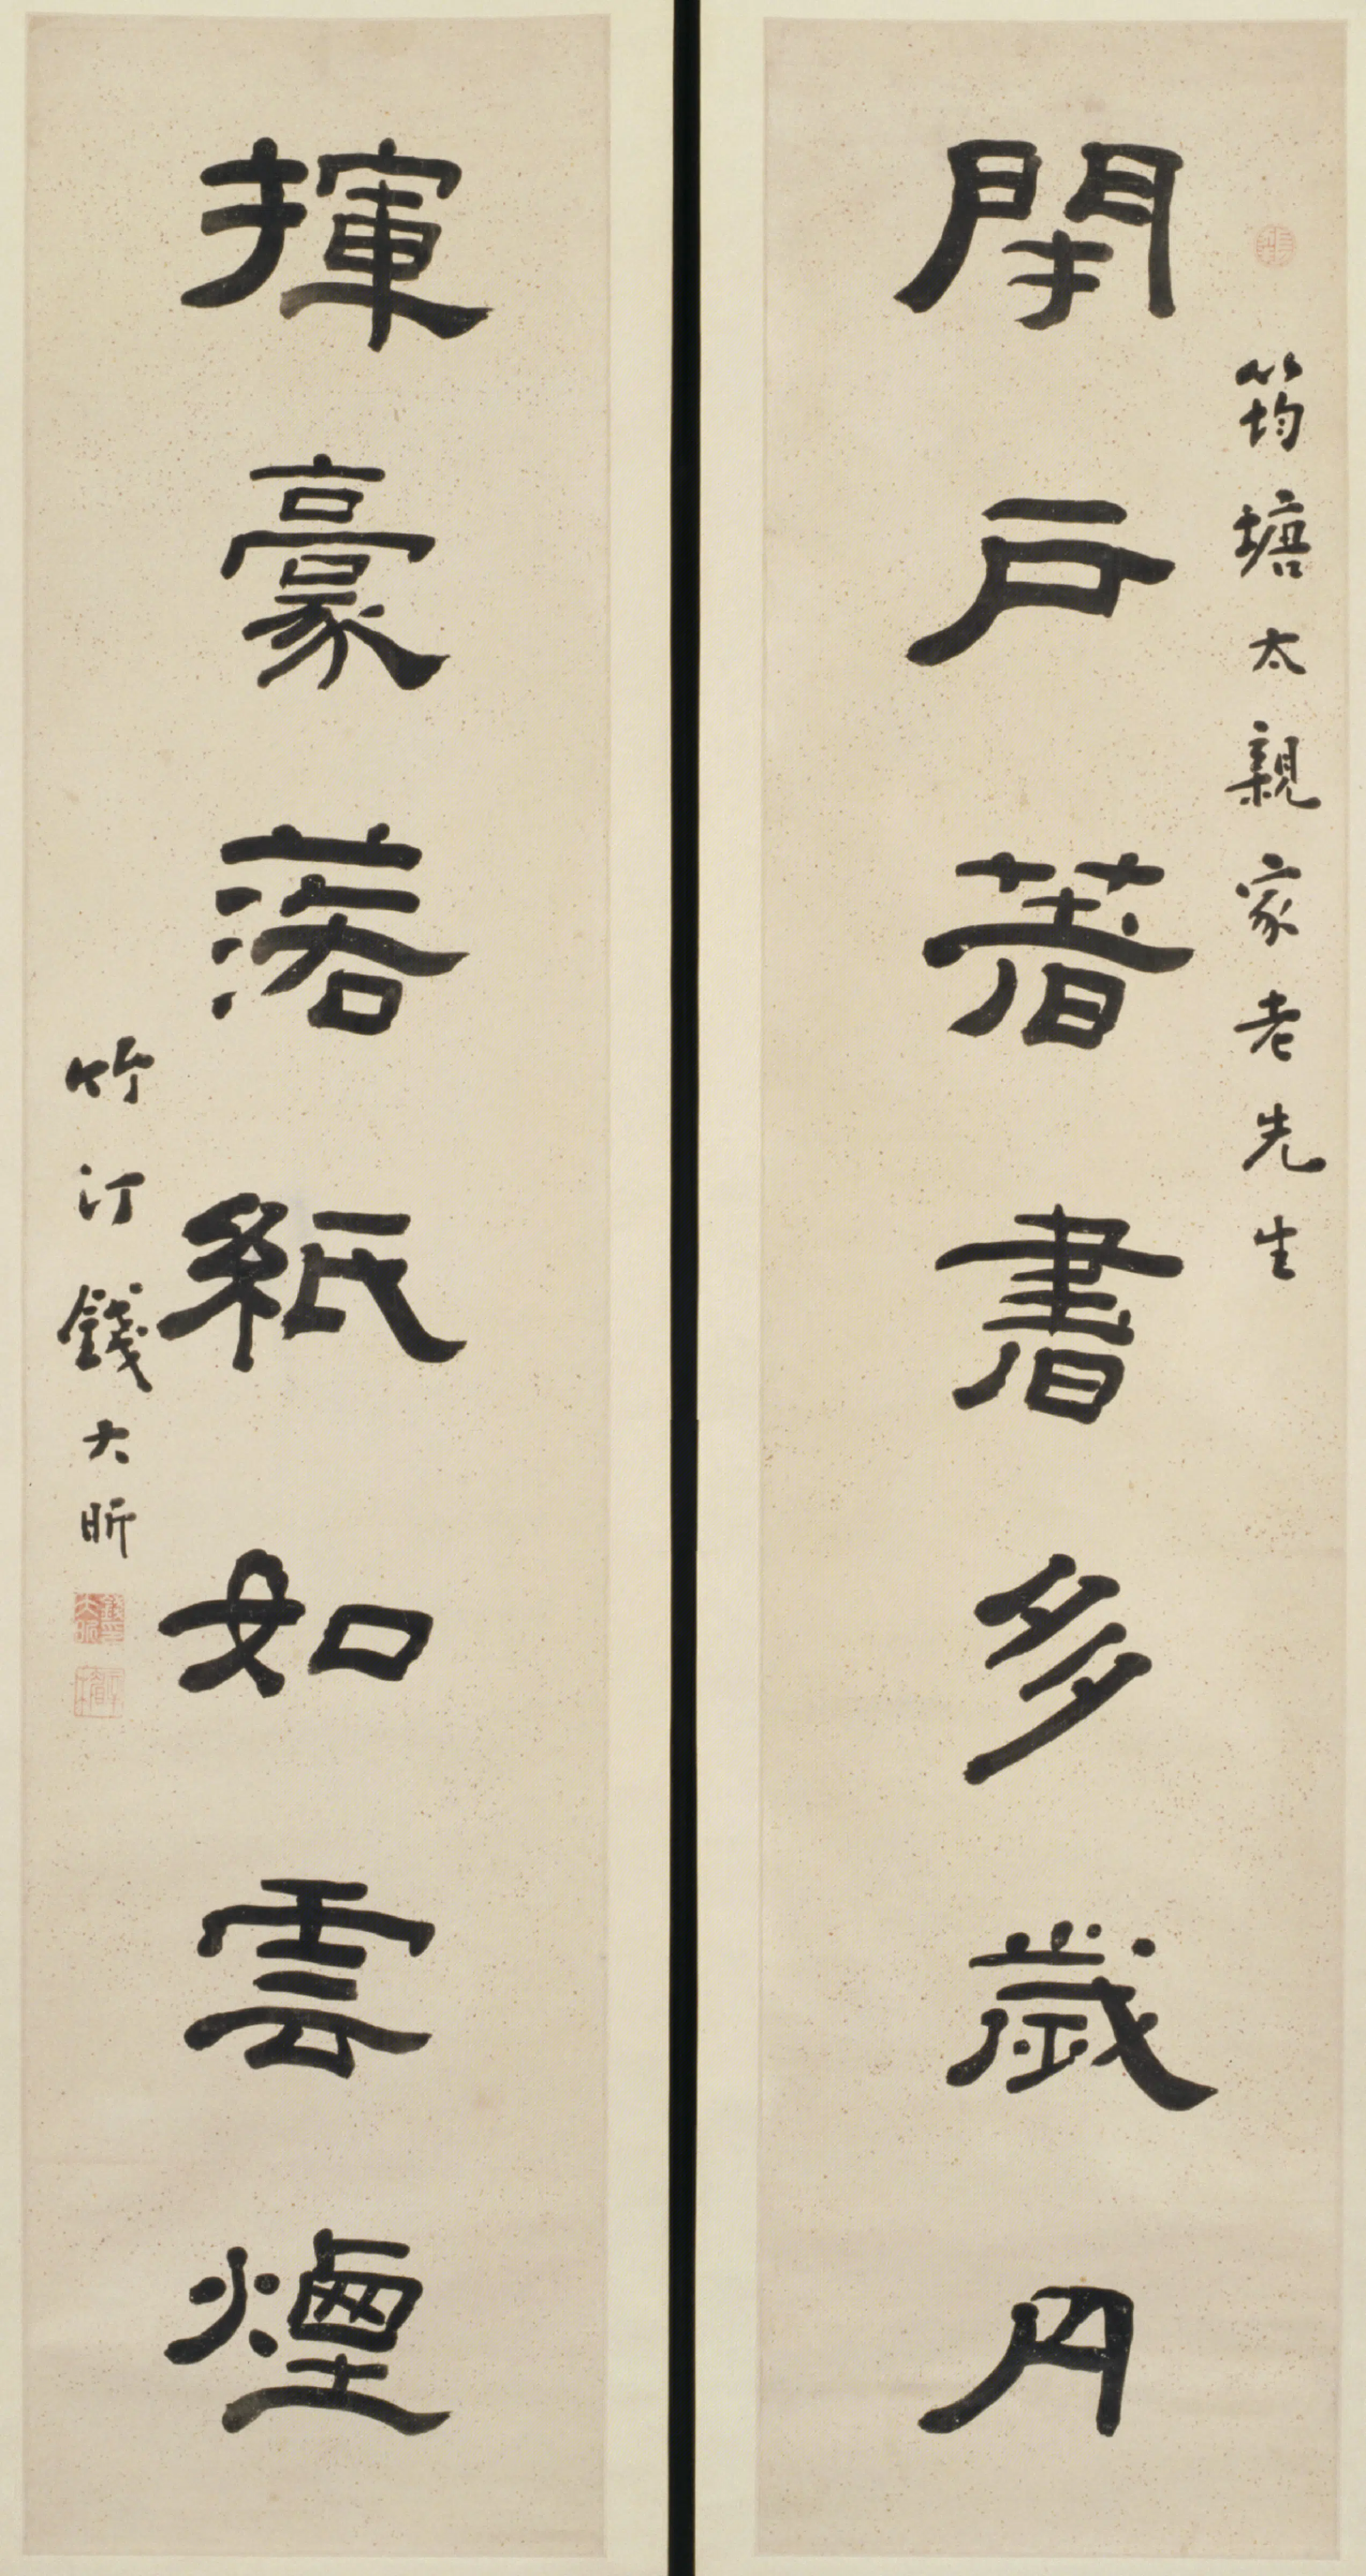 筠塘太親家老先生
閉戶著書多歲月
揮豪落紙如雲煙
竹汀錢大昕